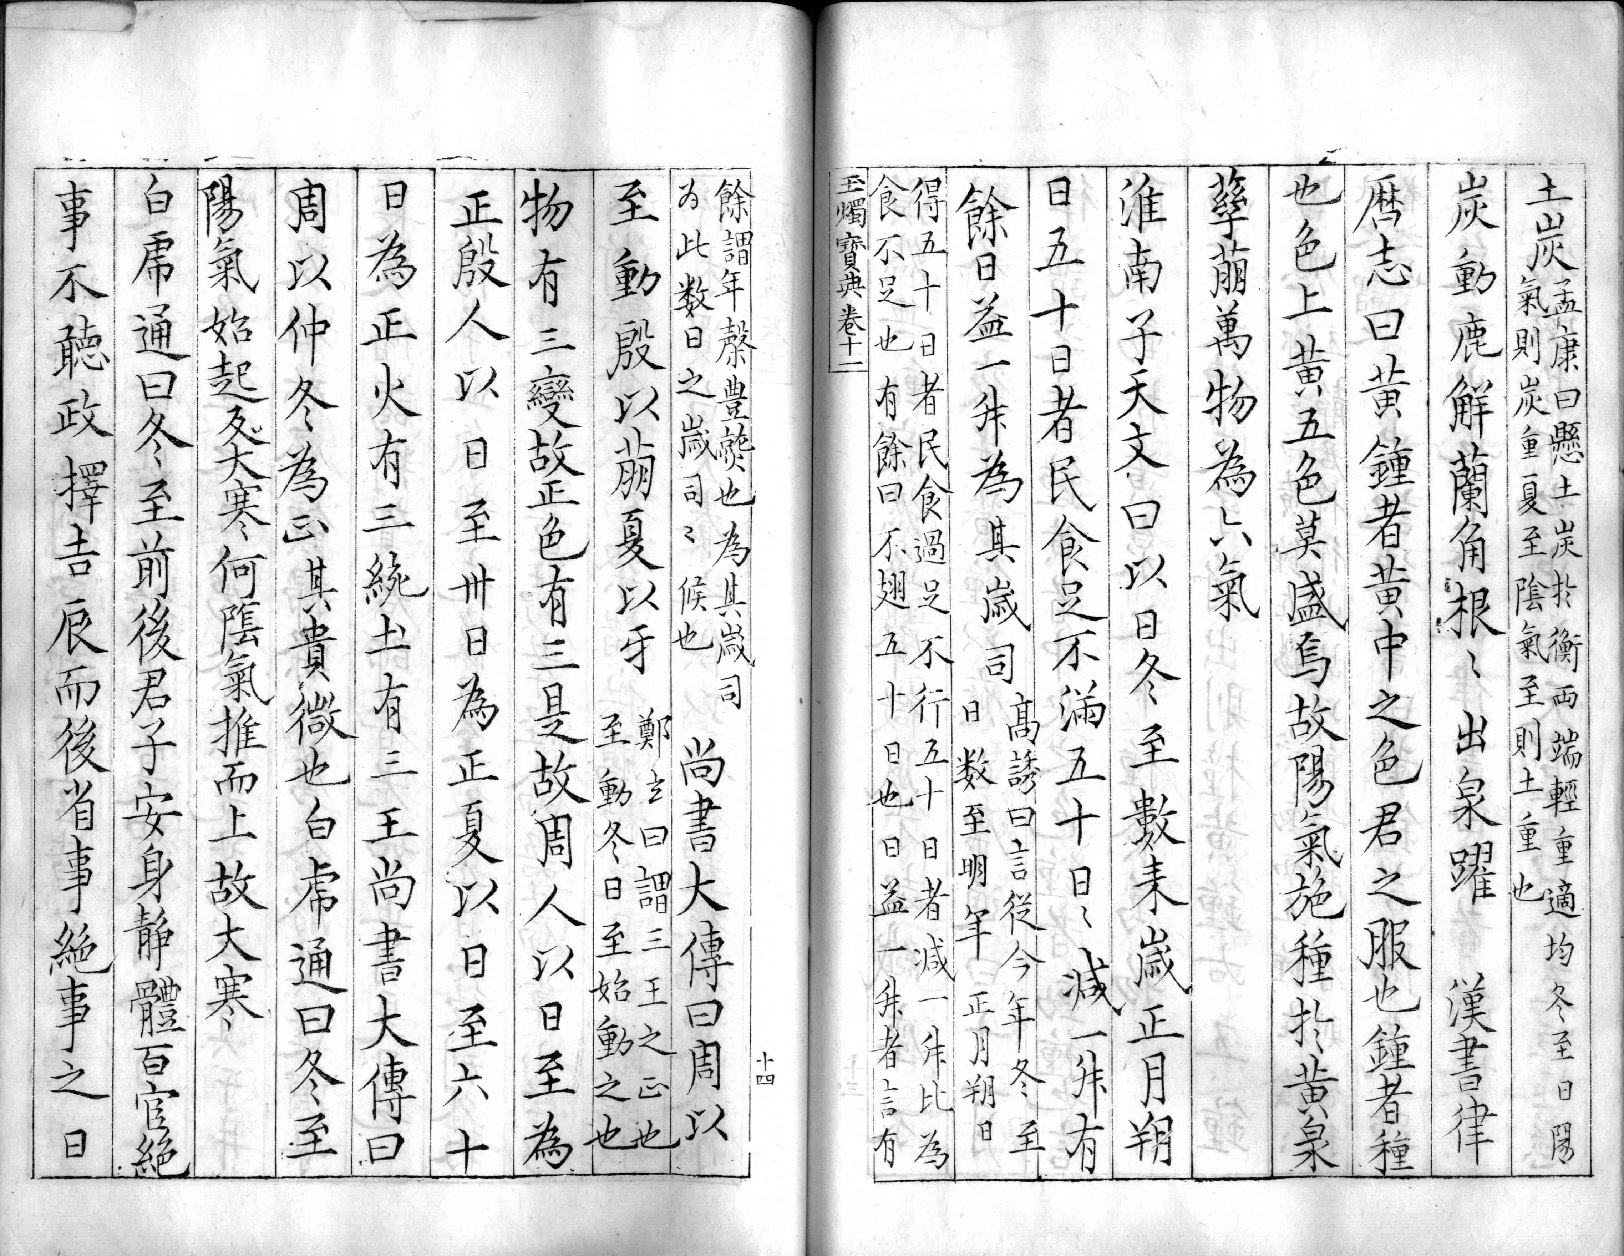 土炭孟康曰懸土炭扵衡兩端輕重適均冬至日陽
氣則炭重夏至陰氣至則土重也
炭動鹿解蘭角根〻出泉躍　漢書律
曆志曰黃鍾者黃中之色君之服也鍾者種
也色上黃五色莫盛焉故陽氣施種扵黃泉
孳萠萬物為六氣
淮南子天文曰以日冬至數来歲正月朔
日五十日者民食足不滿五十日〻減一升有
餘日益一升為其歲司高誘曰言從今年冬至
日数至明年正月朔日
得五十日者民食過足不行五十日者减一升比為
食不足也有餘曰不翅五十日也日益一升者言有
玉燭寶典卷十一
十四
餘謂年㮣豊㷼也為其歲司
為此数日之歲司〻候也　尚書大傳曰周以
至動殷以萠夏以牙鄭玄曰謂三王之正也
至動冬日至始動之也
物有三變故正色有三是故周人以日至為
正殷人以日至卅日為正夏以日至六十
日為正火有三統土有三王尚書大傳曰
周以仲冬為正其貴微也白虎通曰冬至
陽氣始起反大寒何陰氣推而上故大寒
白虎通曰冬至前後君子安身靜體百官絕
事不聽政擇吉辰而後省事絕事之日